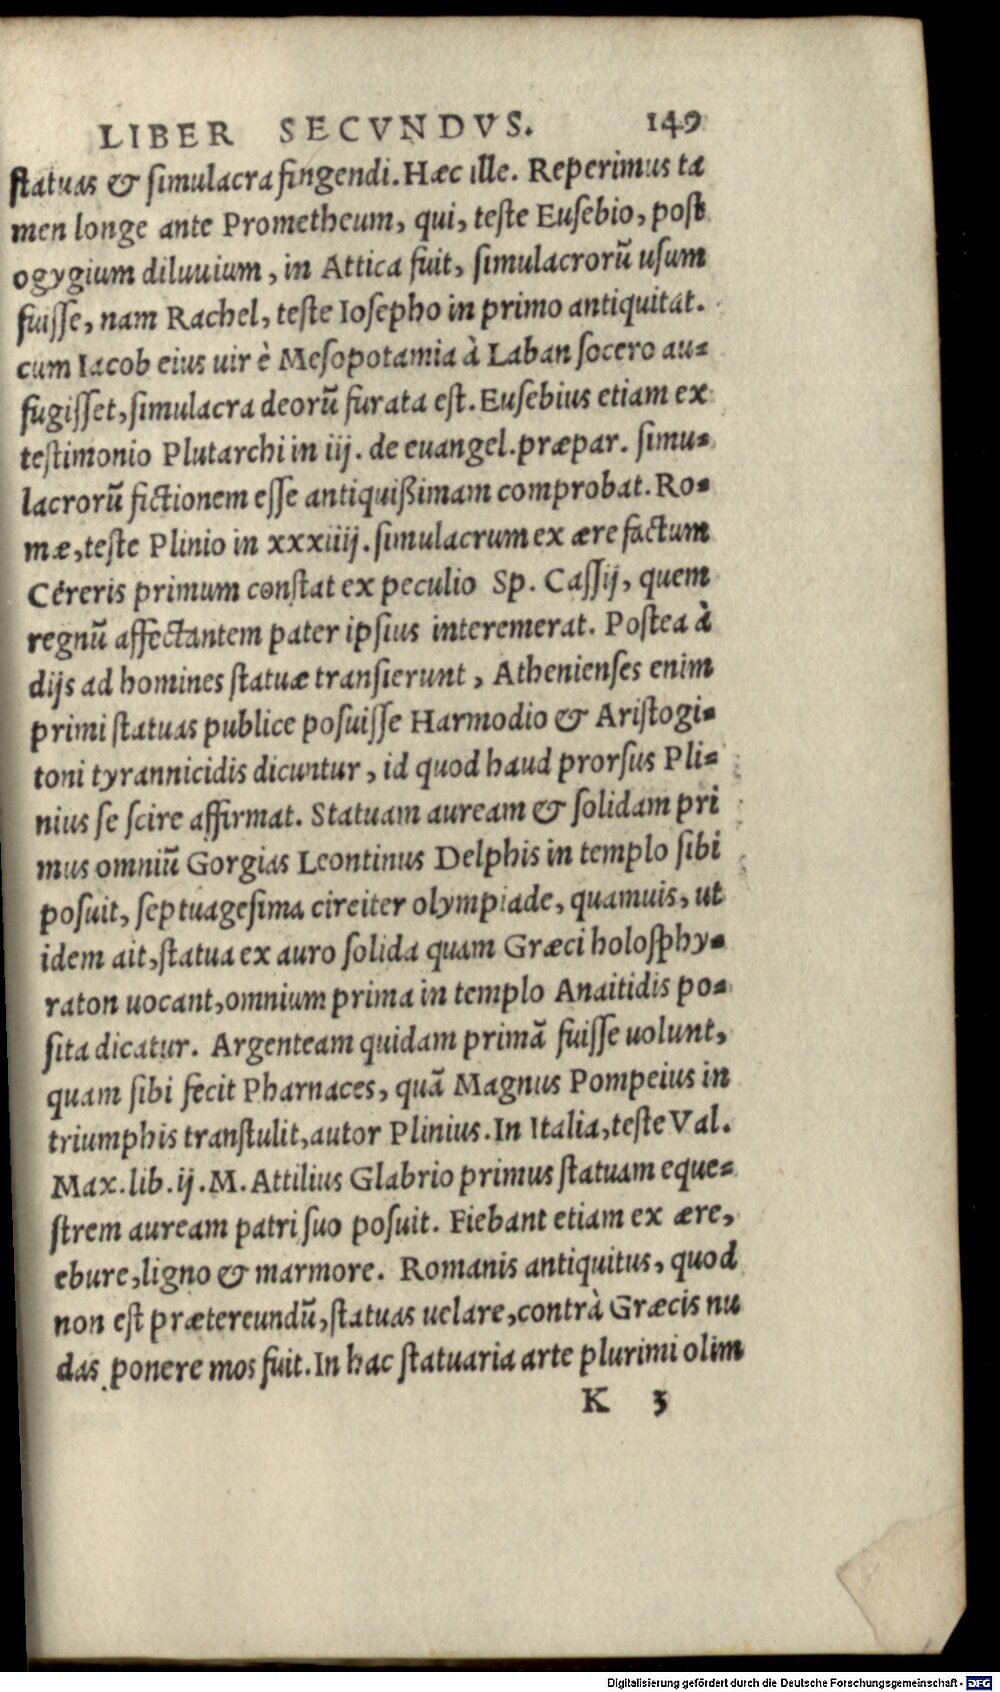 LIBER SECVNDVS. 149
statuas & simulacra fingendi. Hæc ille. Reperimus ta
men longe ante Prometheum, qui, teste Eusebio, post
ogygium diluuium, in Attica fuit, simulacrorũ usum
fuisse, nam Rachel, teste Iosepho in primo antiquitat.
cum Iacob eius uir è Mesopotamia à Laban socero au-
fugisset, simulacra deorũ furata est. Eusebius etiam ex
testimonio Plutarchi in iij. de euangel. præpar. simu-
lacrorũ fictionem esse antiquißimam comprobat. Ro-
mæ, teste Plinio in xxxiiij. simulacrum ex ære factum
Céreris primum constat ex peculio Sp. Cassij, quem
regnũ affectantem pater ipsius interemerat. Postea à
dijs ad homines statuæ transierunt, Athenienses enim
primi statuas publice posuisse Harmodio & Aristogi-
toni tyrannicidis dicuntur, id quod haud prorsus Pli-
nius se scire affirmat. Statuam auream & solidam pri
mus omniũ Gorgias Leontinus Delphis in templo sibi
posuit, septuagesima cireiter olympiade, quamuis, ut
idem ait, statua ex auro solida quam Græci holosphy-
raton uocant, omnium prima in templo Anaitidis po-
sita dicatur. Argenteam quidam primã fuisse uolunt,
quam sibi fecit Pharnaces, quã Magnus Pompeius in
triumphis transtulit, autor Plinius. In Italia, teste Val.
Max. lib. ij. M. Attilius Glabrio primus statuam eque-
strem auream patri suo posuit. Fiebant etiam ex ære,
ebure, ligno & marmore. Romanis antiquitus, quod
non est prætereundũ, statuas uelare, contrà Græcis nu
das ponere mos fuit. In hac statuaria arte plurimi olim
K 3
Digitalisierung gefördert durch die Deutsche Forschungsgemeinschaft - DFG